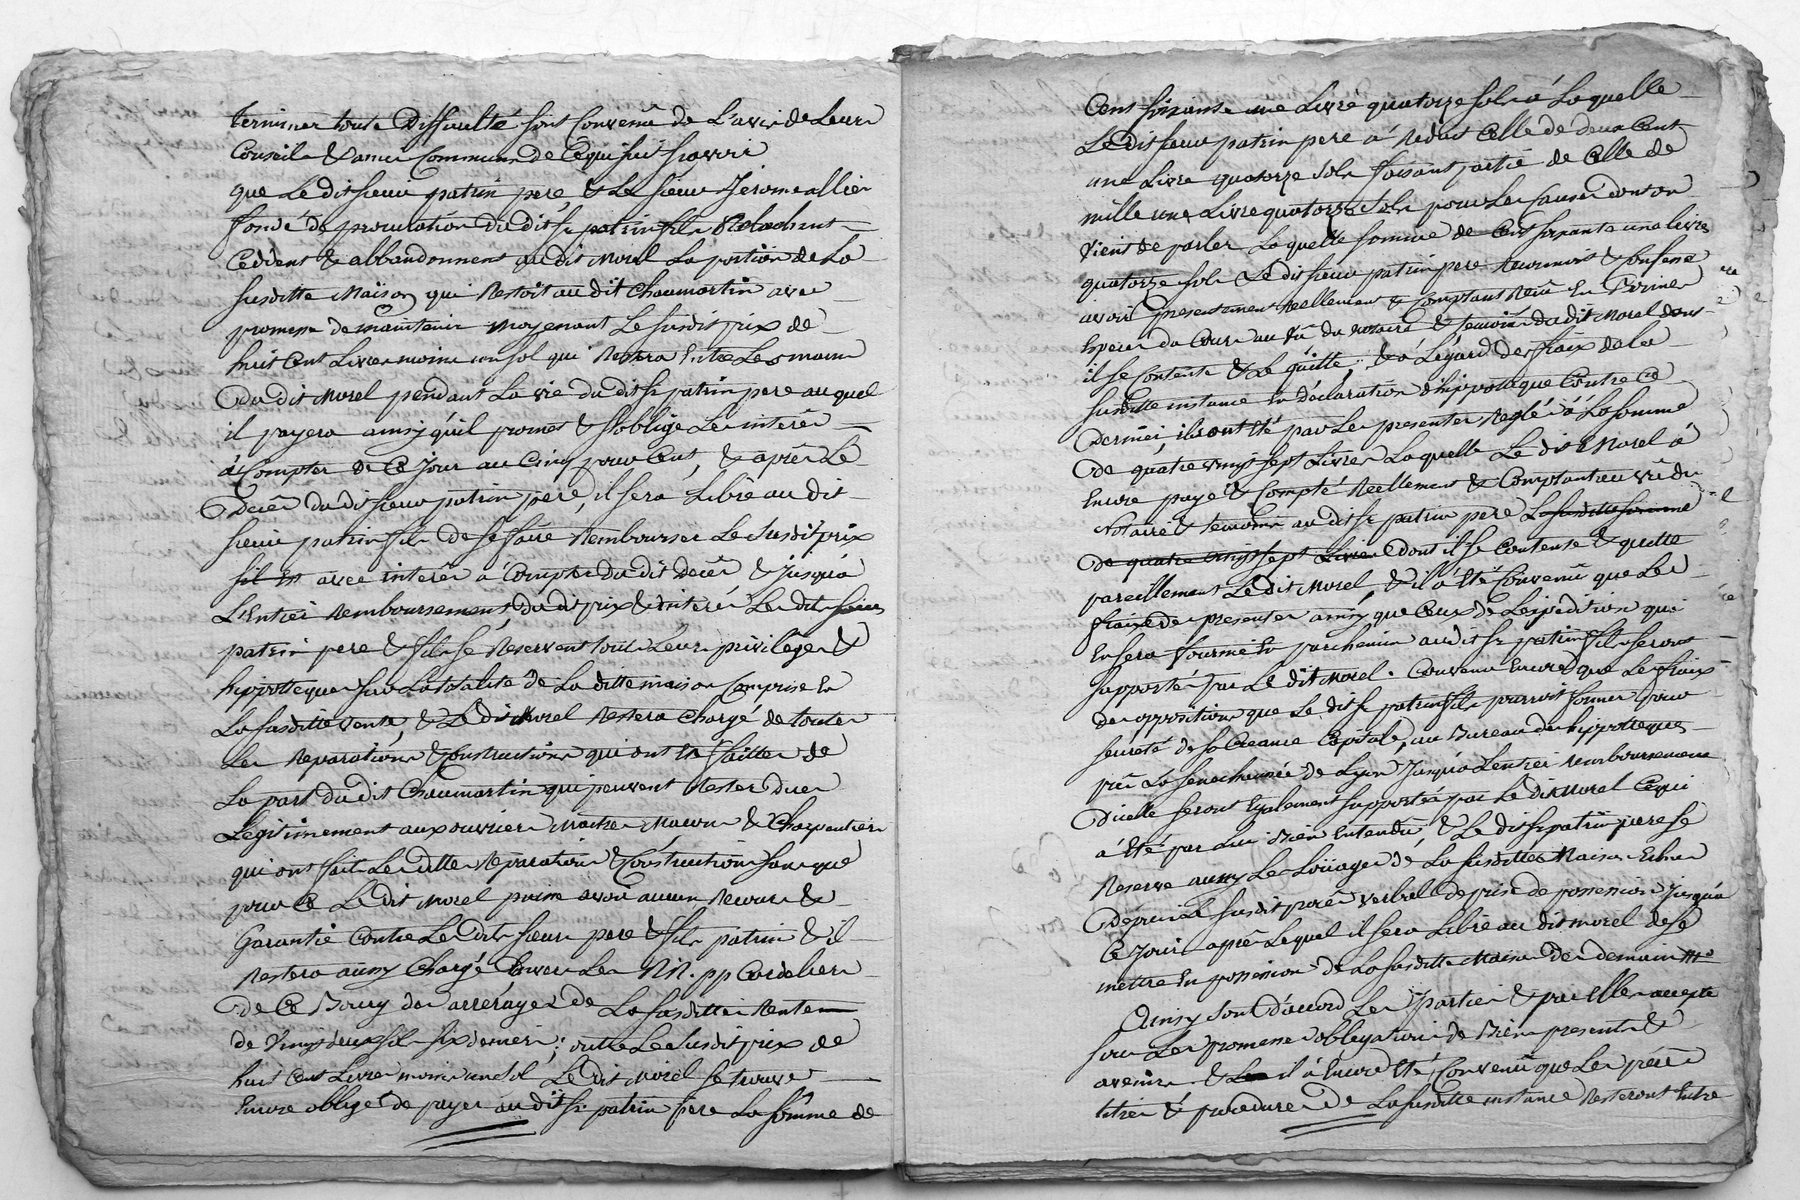 terminer toute Difficulté sont Convenû de L'avis de Leurs
Conseils & amis Communs de Cequi suit sçavoir
que Le dit sieur patrin pere & Le sieur Jerome allier
fondé de procuration du dit sr patrin fils Relachent
Cedent & abbandonnent au dit Morel La portion de La
susditte Maison qui Restoit au dit Chaumartin avec
promesse de maintenir moyenant Le susdit prix de
huit Cent Livres moins un sol qui Restera Entre Les mains
Du dit Morel pendant La vie du dit sr patrin pere auquel
il payera ainsy qu'il promet & s'oblige Les interês
à Compter de Ce Jour au Cinq pour Cent, & après Le
Decès du dit sieur patrin pere, il sera Libre au dit
sieur patrin fils de se faire Rembourser Le susdit prix
avec interês a Compter du dit Decês & Jusqu'a
L'Entier Remboursement du dit prix & interês Les dits sieurs
patrin pere & fils se Reservent tous Leurs privileges &
hippotteques sur La totalité de La ditte maison Comprise En
La susditte vente, & Le dit Morel Restera Chargé de toutes
Les Reparations & Constructions qui ont Eté faittes de
La part du dit Chaumartin qui peuvent Rester Dues
Legitimement aux ouvriers Maitres Maçons & Charpentiers
qui ont fait Les dittes Reparations & Constructions sans que
pour Ce Le dit Morel puisse avoir aucun Recours &
Garantie Contre Les dits sieurs pere & fils patrin & il
Restera aussy Chargé Envers Les RR. pp Cordeliers
de Ce Bourg des arrérages de La susditte Rente
de Vingt deux sols six deniers; outre Le susdit prix de
huit Cent Livres moins un sol Le dit Morel se trouve
Encore obligé de payer au dit sr patrin pere La somme de
Cent soixante une Livre quatorze sols à Laquelle
Le dit sieur patrin pere a Reduit Celle de deux Cent
une Livre quatorze sols faisant partie de Celle de
mille une Livre quatorze sols pour Les Causes dont on
Vient de parler Laquelle somme de Cent soixante une Livres
quatorze sols Le dit sieur patrin pere Reconnoit & Confesse
avoir presentement Reellement & Comptant Reçû En
Especes du Cours au vû du notaire & temoins du dit Morel dont
il se Contente & Le quitte; & à L'égard des fraix de La
susditte instance En déclaration d'hippotteque Contre Ce
Dernier ils ont Eté par Les presentes Reglés à La somme
De quatre vingt sept Livres Laquelle Le dit Morel à
Encore payé & Compté Reellement & Comptant au vû du
Notaire & temoins au dit sr patrin pere La susditte somme
De quatre vingt sept Livres Dont il se Contente & quitte
pareillement Le dit Morel, & il à Eté Convenû que Les
fraix des presentes ainsy que Ceux de L'expédition qui
En sera fournie En parchemin au dit sr patrin fils seront
supportés par Le dit Morel. Convenu Encore que Les fraix
Des oppositions que Le dit sr patrin fils pourroit former pour
seureté de sa Creance Capitale, au Bureau des hippotteques
près La senechaussée de Lyon Jusqu'à L'entier Remboursement
D'icelle seront Egalement supportés par Le dit Morel Cequi
à Eté par Lui Bien Entendû & Le dit sr patrin pere se
Reserve aussy Les Loüages de La susditte Maison Echus
Depuis Le susdit procès verbal de prise de possession Jusqu'à
Ce Jour après Lequel il sera Libre au dit morel de se
mettre En possession de La susditte Maison Dès demain
Ainsy sont d'accord Les Parties & par Elles accepté
sous Les promesses obligations de Biens presents &
avenirs & il à Encore Eté Convenû que Les pieces
titres & procedures de La susditte instance Resteront Entre